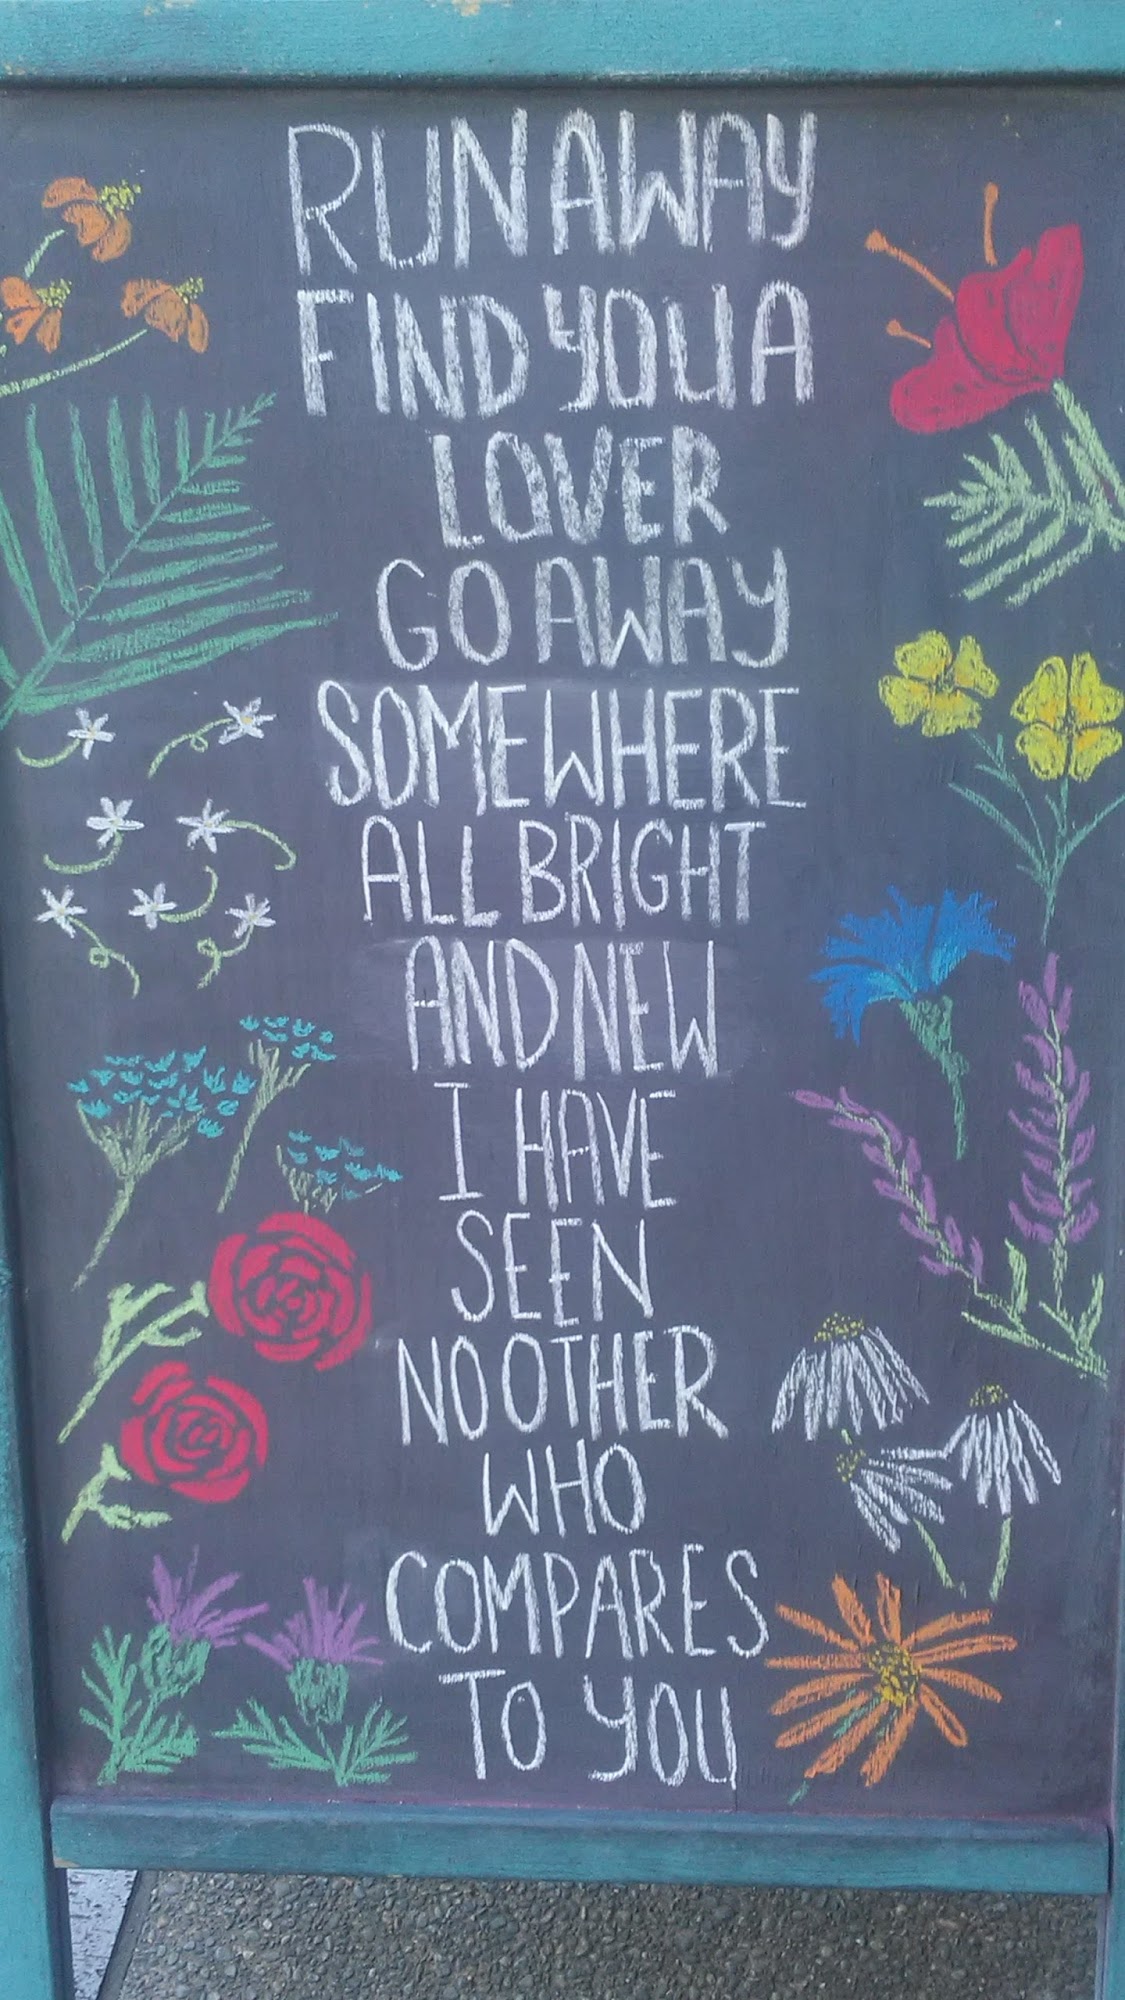 RUN AWAY
FIND YOU A
LOVER
GO AWAY
SOMEWHERE
ALL BRIGHT
AND NEW
I HAVE
SEEN
NO OTHER
WHO
COMPARES
TO YOU